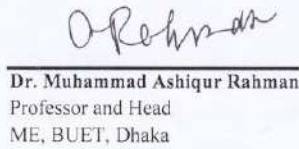 ARahman
Dr. Muhammad Ashiqur Rahman
Professor and Head
ME, BUET, Dhaka